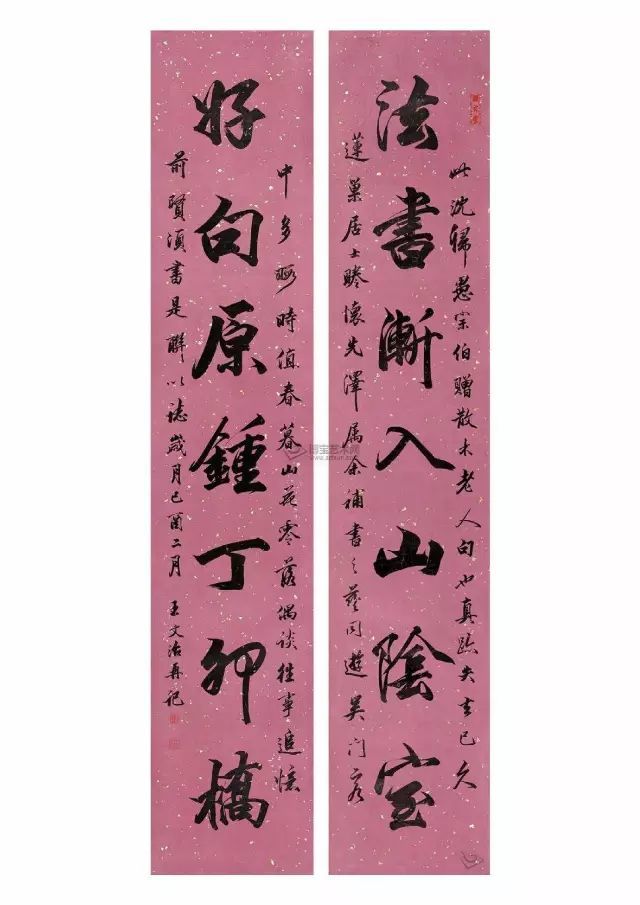 法書漸入山陰室
此沈歸愚宗伯贈散木老人句也真跡失去已久
蓮巢居士睠懷先澤属余補書之同遊吴门
好句原鍾丁卯橋
中多暇時值春暮山花零落偶談往事追憶
前賢湏書是聯以誌歲月己酉二月 王文治再记
博宝艺术网